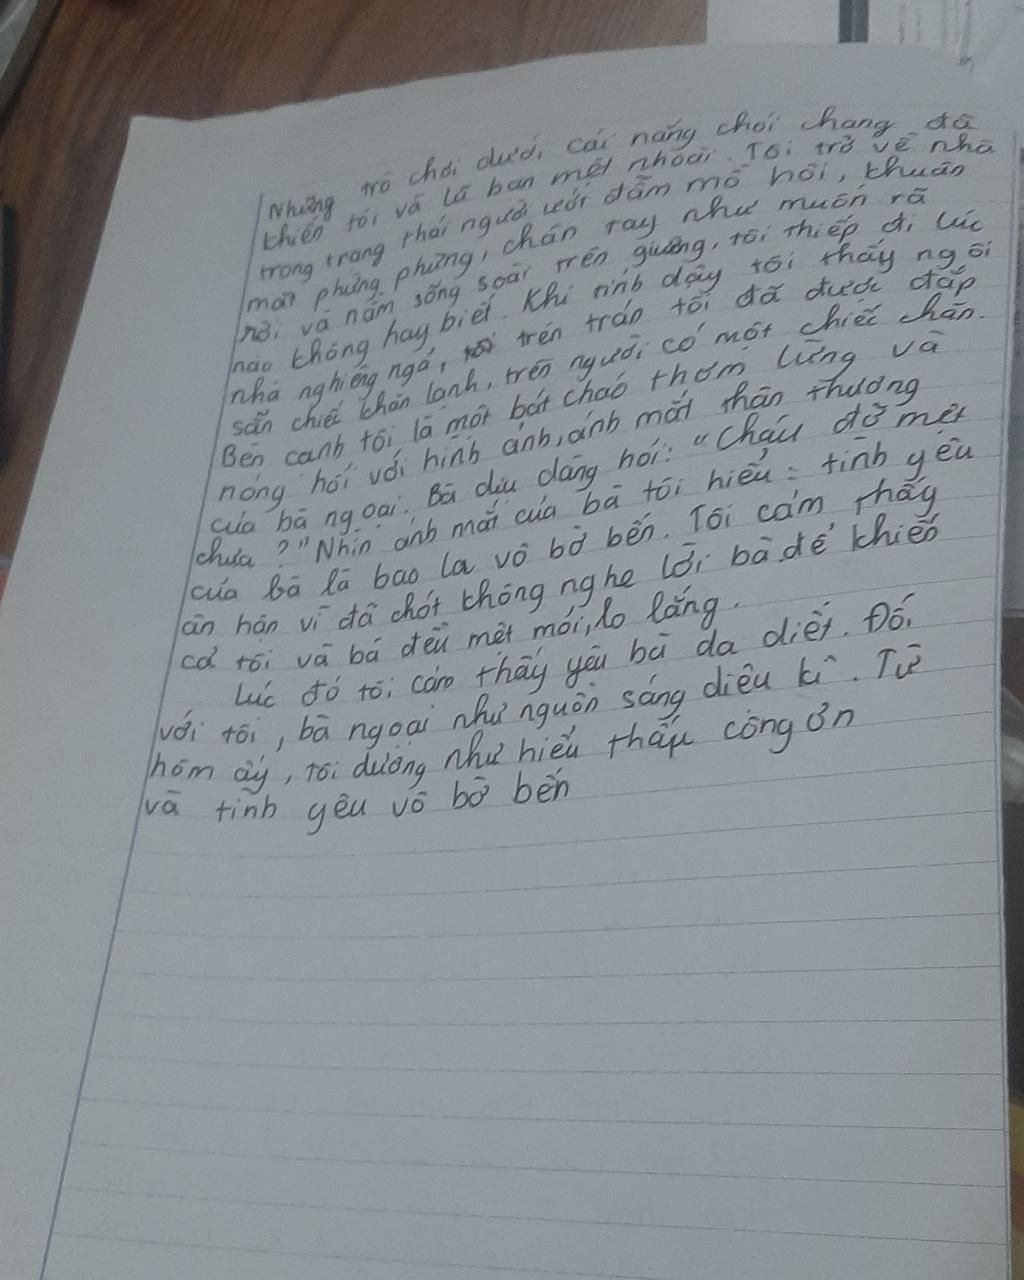 Những trò chơi dưới cái nắng chói chang đã
khiến tôi và lũ bạn mệt nhoài. Tôi trở về nhà
trong trạng thái người ướt đẫm mồ hôi, khuôn
mặt phừng phừng, chân tay như muốn rã
rời và nằm sõng soài trên giường, tôi thiếp đi lúc
nào không hay biết. Khi tỉnh dậy tôi thấy ngôi
nhà nghiêng ngả, trên trán tôi đã được đắp
sẵn chiếc khăn lạnh, trên người có một chiếc chăn.
Bên cạnh tôi là một bát cháo thơm lừng và
nóng hổi với hình ảnh, ánh mắt thân thương
của bà ngoại. Bà dịu dàng hỏi: "Cháu đỡ mệt
chưa?" Nhìn ánh mắt của bà tôi hiểu: tình yêu
của bà là bao la vô bờ bến. Tôi cảm thấy
ân hận vì đã chót không nghe lời bà để khiến
cả tôi và bà đều mệt mỏi, lo lắng.
Lúc đó tôi cảm thấy yêu bà da diết. Đối
với tôi, bà ngoại như nguồn sáng diệu kì. Từ
hôm ấy, tôi dường như hiểu thấu công ơn
và tình yêu vô bờ bến